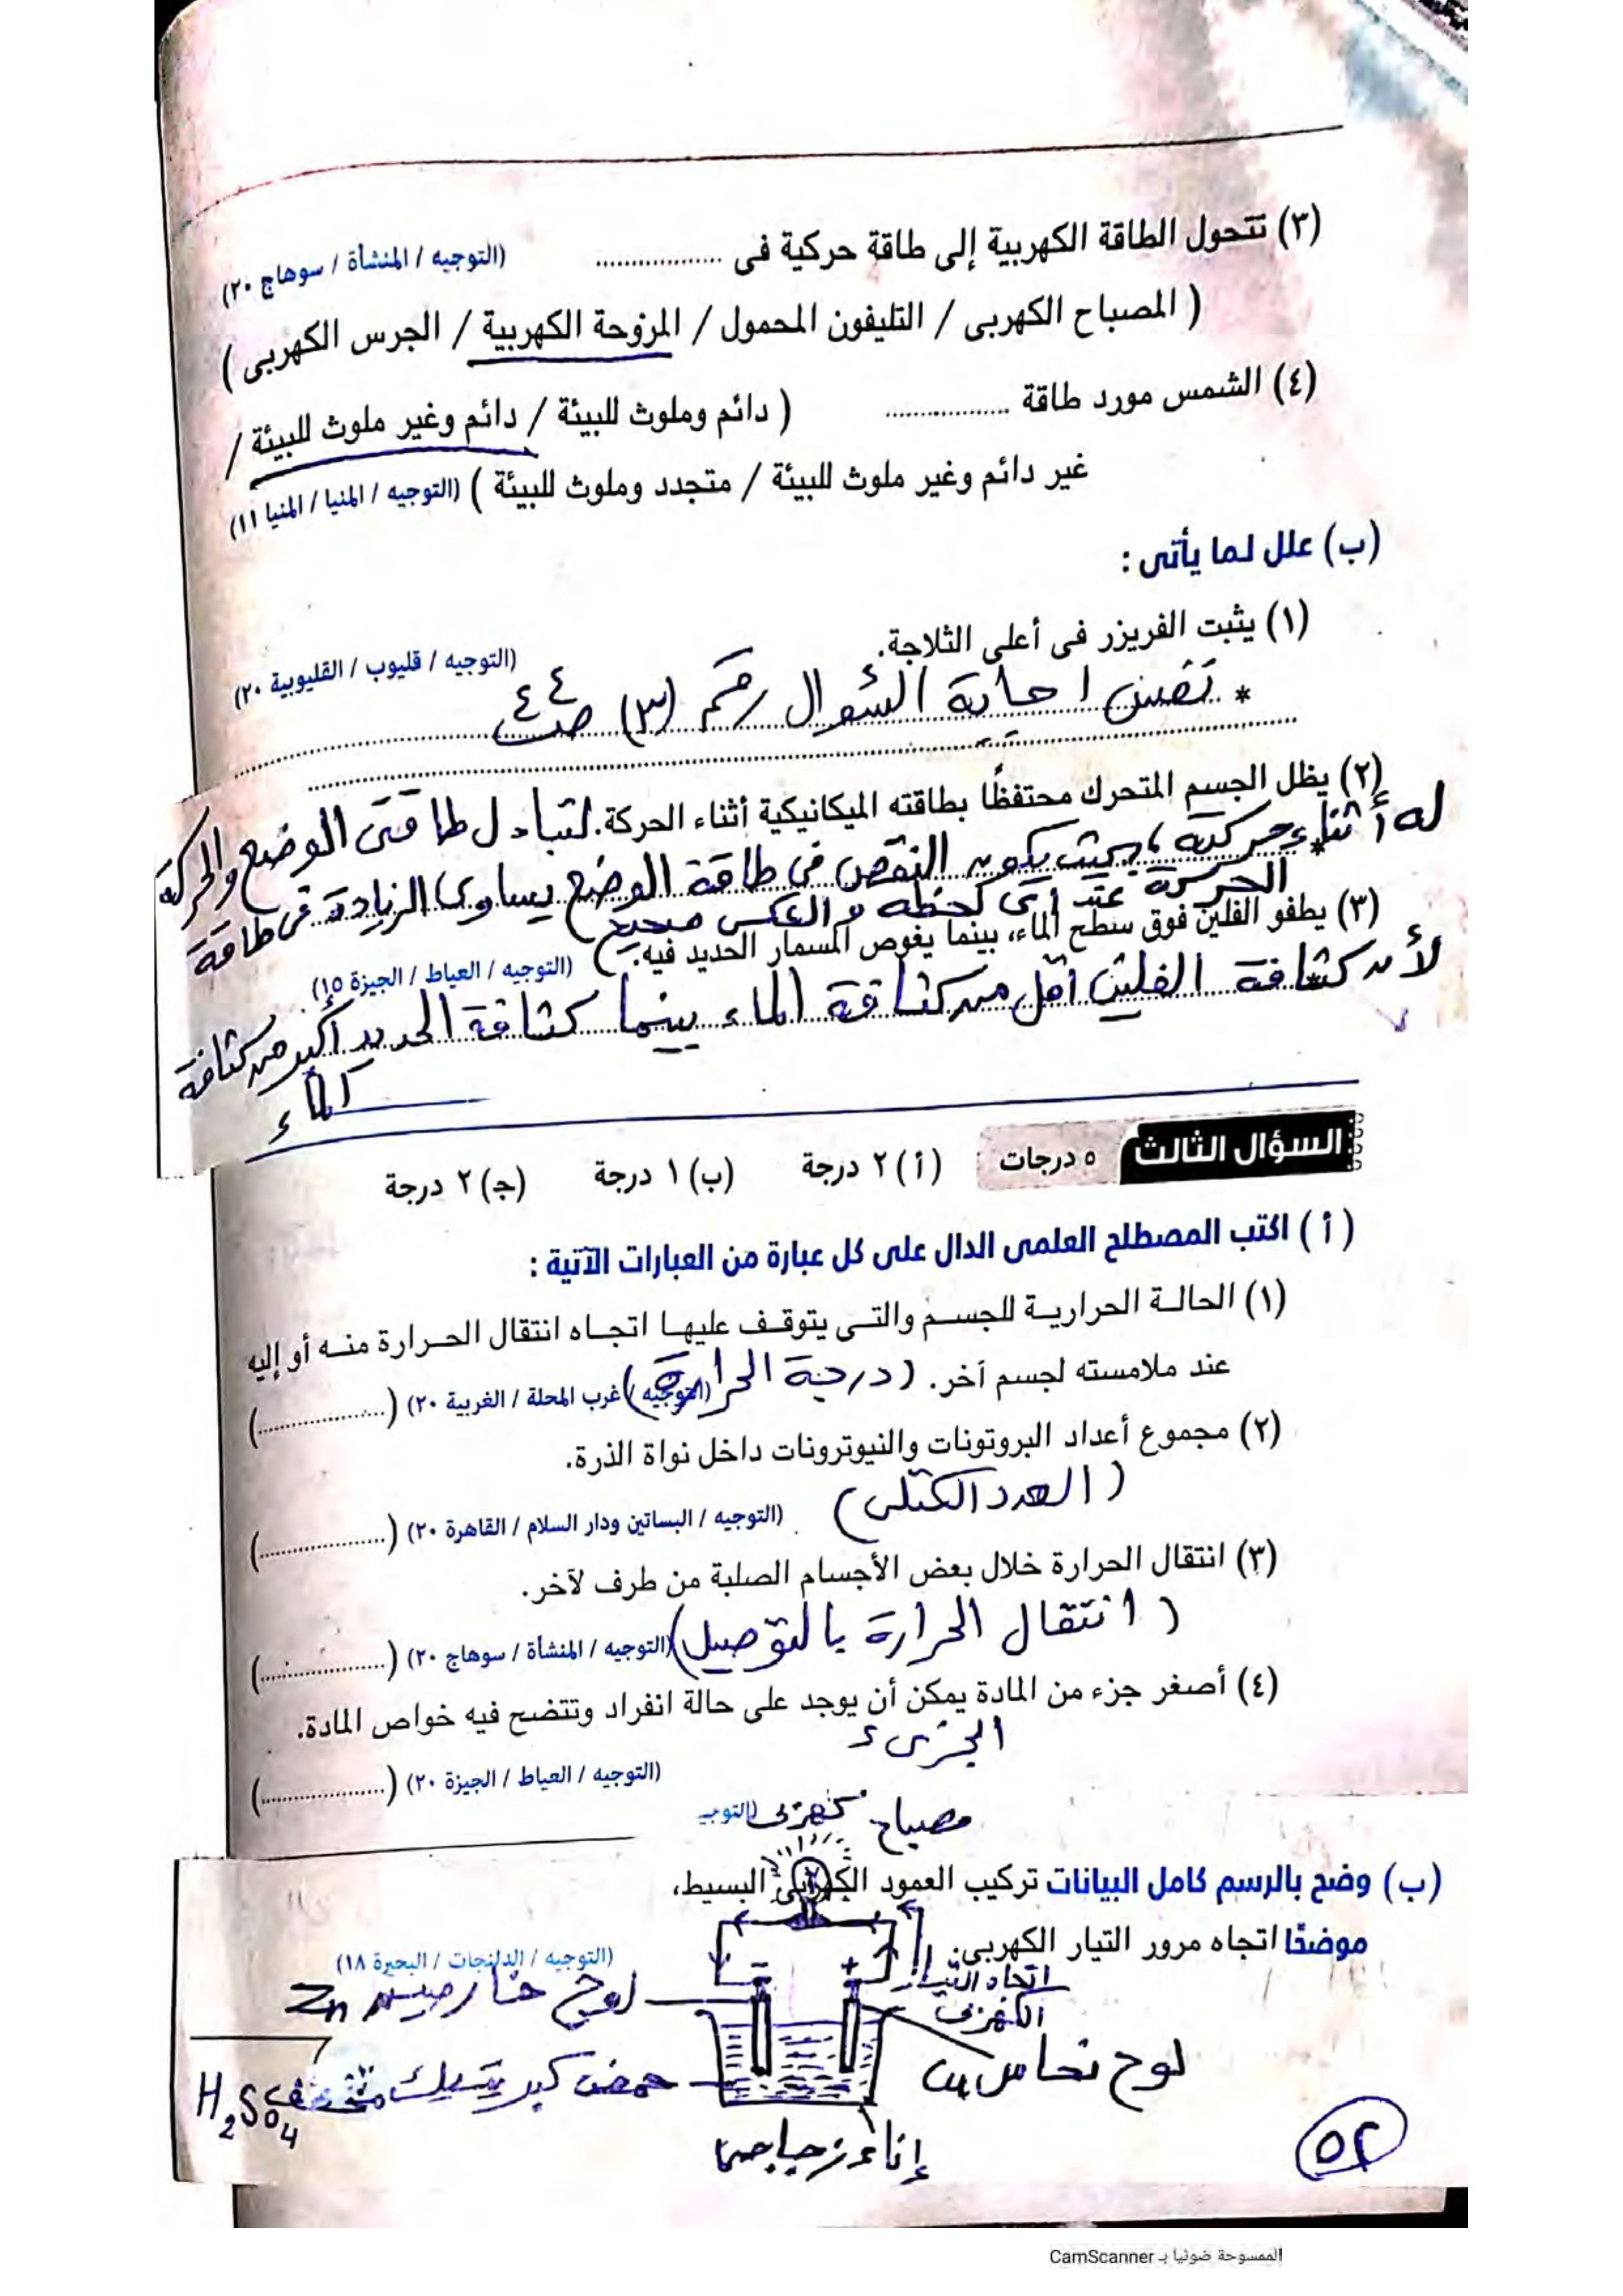 (٣) تتحول الطاقة الكهربية إلى طاقة حركية فى ................. (التوجيه / المنشأة / سوهاج ٢٠)
( المصباح الكهربى / التليفون المحمول / المزوحة الكهربية / الجرس الكهربى )
(٤) الشمس مورد طاقة ................. ( دائم وملوث للبيئة / دائم وغير ملوث للبيئة /
غير دائم وغير ملوث للبيئة / متجدد وملوث للبيئة ) (التوجيه / المنيا / المنيا ١١)
(ب) علل لما يأتى :
(١) يثبت الفريزر فى أعلى الثلاجة. (التوجيه / قليوب / القليوبية ٢٠)
* نفس اجابة السؤال رقم (٣) صـ ٤٤
(٢) يظل الجسم المتحرك محتفظًا بطاقته الميكانيكية أثناء الحركة. لتبادل طاقتى الوضع والحركة
له أثناء حركته ، بحيث يكون النقص فى طاقة الوضع يساوى الزيادة فى طاقة
الحركة عند أى لحظة و العكس صحيح
(٣) يطفو الفلين فوق سطح الماء، بينما يغوص المسمار الحديد فيه. (التوجيه / العياط / الجيزة ١٥)
لأن كثافة الفلين أقل من كثافة الماء بينما كثافة الحديد أكبر من كثافة
الماء
السؤال الثالث ٥ درجات (أ) ٢ درجة (ب) ١ درجة (جـ) ٢ درجة
(أ) اكتب المصطلح العلمى الدال على كل عبارة من العبارات الآتية :
(١) الحالة الحرارية للجسم والتى يتوقف عليها اتجاه انتقال الحرارة منه أو إليه
عند ملامسته لجسم آخر. (درجة الحرارة) (التوجيه / غرب المحلة / الغربية ٢٠) (.................)
(٢) مجموع أعداد البروتونات والنيوترونات داخل نواة الذرة.
(العدد الكتلى) (التوجيه / البساتين ودار السلام / القاهرة ٢٠) (.................)
(٣) انتقال الحرارة خلال بعض الأجسام الصلبة من طرف لآخر.
(انتقال الحرارة بالتوصيل) (التوجيه / المنشأة / سوهاج ٢٠) (.................)
(٤) أصغر جزء من المادة يمكن أن يوجد على حالة انفراد وتتضح فيه خواص المادة.
الجزىء
(التوجيه / العياط / الجيزة ٢٠) (.................)
مصباح كهربى (التوجيـ
(ب) وضح بالرسم كامل البيانات تركيب العمود الكهربى البسيط،
موضحًا اتجاه مرور التيار الكهربى. (التوجيه / الدلنجات / البحيرة ١٨)
- +
اتجاه التيار
الكهربى
لوح خارصين Zn
لوح نحاس Cu
حمض كبريتيك مخفف
H₂SO₄
إناء زجاجى
٥٢
الممسوحة ضوئيا بـ CamScanner